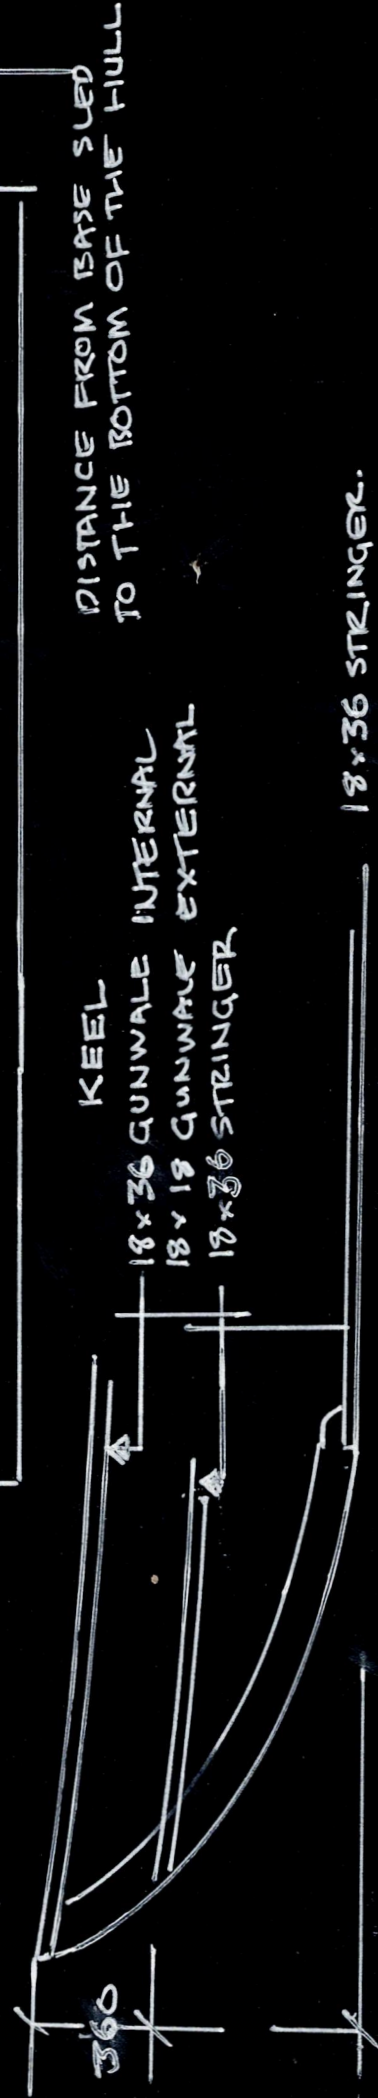 DISTANCE FROM BASE SLED
TO THE BOTTOM OF THE HULL
KEEL
18x36 GUNWALE INTERNAL
18x18 GUNWALE EXTERNAL
18x36 STRINGER
18x36 STRINGER.
360